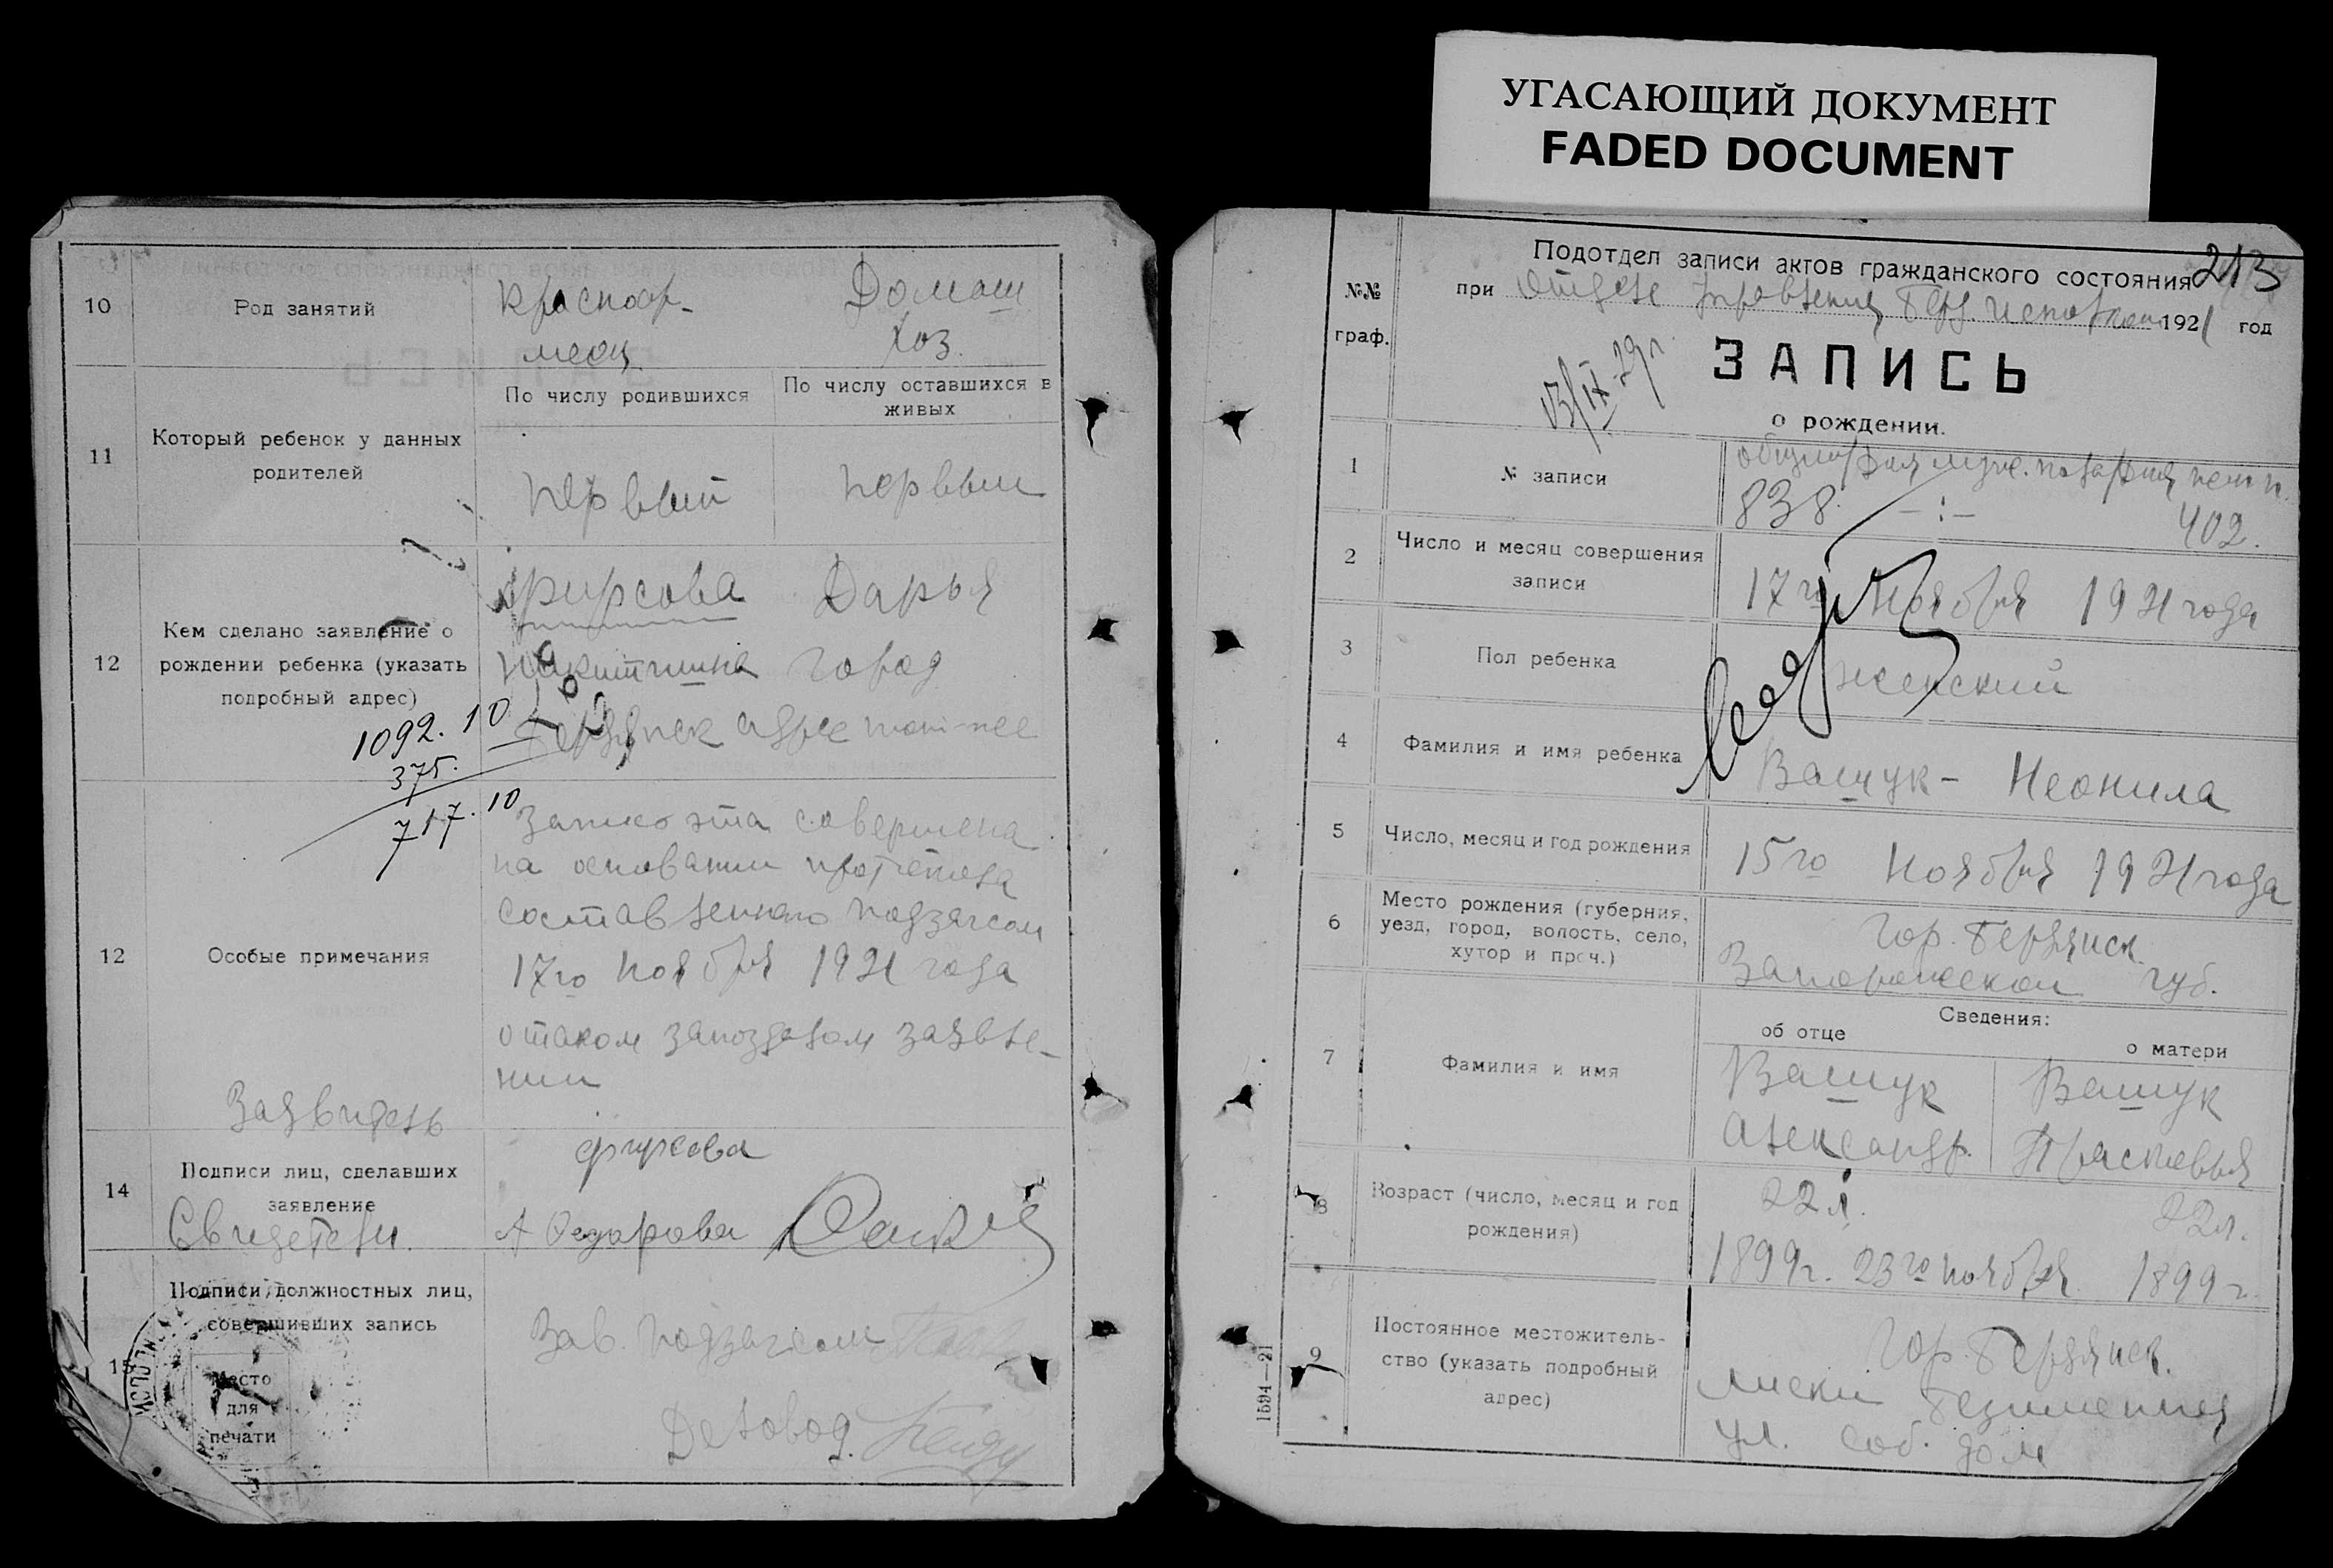 УГАСАЮЩИЙ ДОКУМЕНТ
FADED DOCUMENT
10
Род занятий
Красноар-
меец
Домаш
хоз.
11
Который ребенок у данных
родителей
По числу родившихся
По числу оставшихся в
живых
первый
первый
12
Кем сделано заявление о
рождении ребенка (указать
подробный адрес)
Фирсова Дарья
Никитична город
Бердянск адрес тот-же
1092.10
375.
717.10
12
Особые примечания
Запись эта совершена
на основании протокола
составленного подзагсом
17го ноября 1921 года
о таком запоздалом заявле-
нии
Заявитель
фирсова
14
Подписи лиц, сделавших
заявление
Свидетели.
А Федарова
15
Подписи должностных лиц,
совершивших запись
Место
для
печати
Зав. подзагсом
Деловод.
213
№№
граф.
Подотдел записи актов гражданского состояния
при Отделе Управления Берд. исполком 1921 год
13/IX-29г.
ЗАПИСЬ
о рождении.
1
№ записи
838. -:- 402.
2
Число и месяц совершения
записи
17го Ноября 1921 года
3
Пол ребенка
женский
4
Фамилия и имя ребенка
Вашук - Неонила
5
Число, месяц и год рождения
15го Ноября 1921 года
6
Место рождения (губерния,
уезд, город, волость, село,
хутор и проч.)
Гор. Бердянск
Запорожской губ.
Сведения:
об отце
о матери
7
Фамилия и имя
Вашук
Александр.
Вашук
Прасковья
8
Возраст (число, месяц и год
рождения)
22 л.
22 л.
1899г. 23го ноября 1899 г.
9
Постоянное местожитель-
ство (указать подробный
адрес)
Гор. Бердянск.
лиски Безименная
ул. соб. дом
1594—21